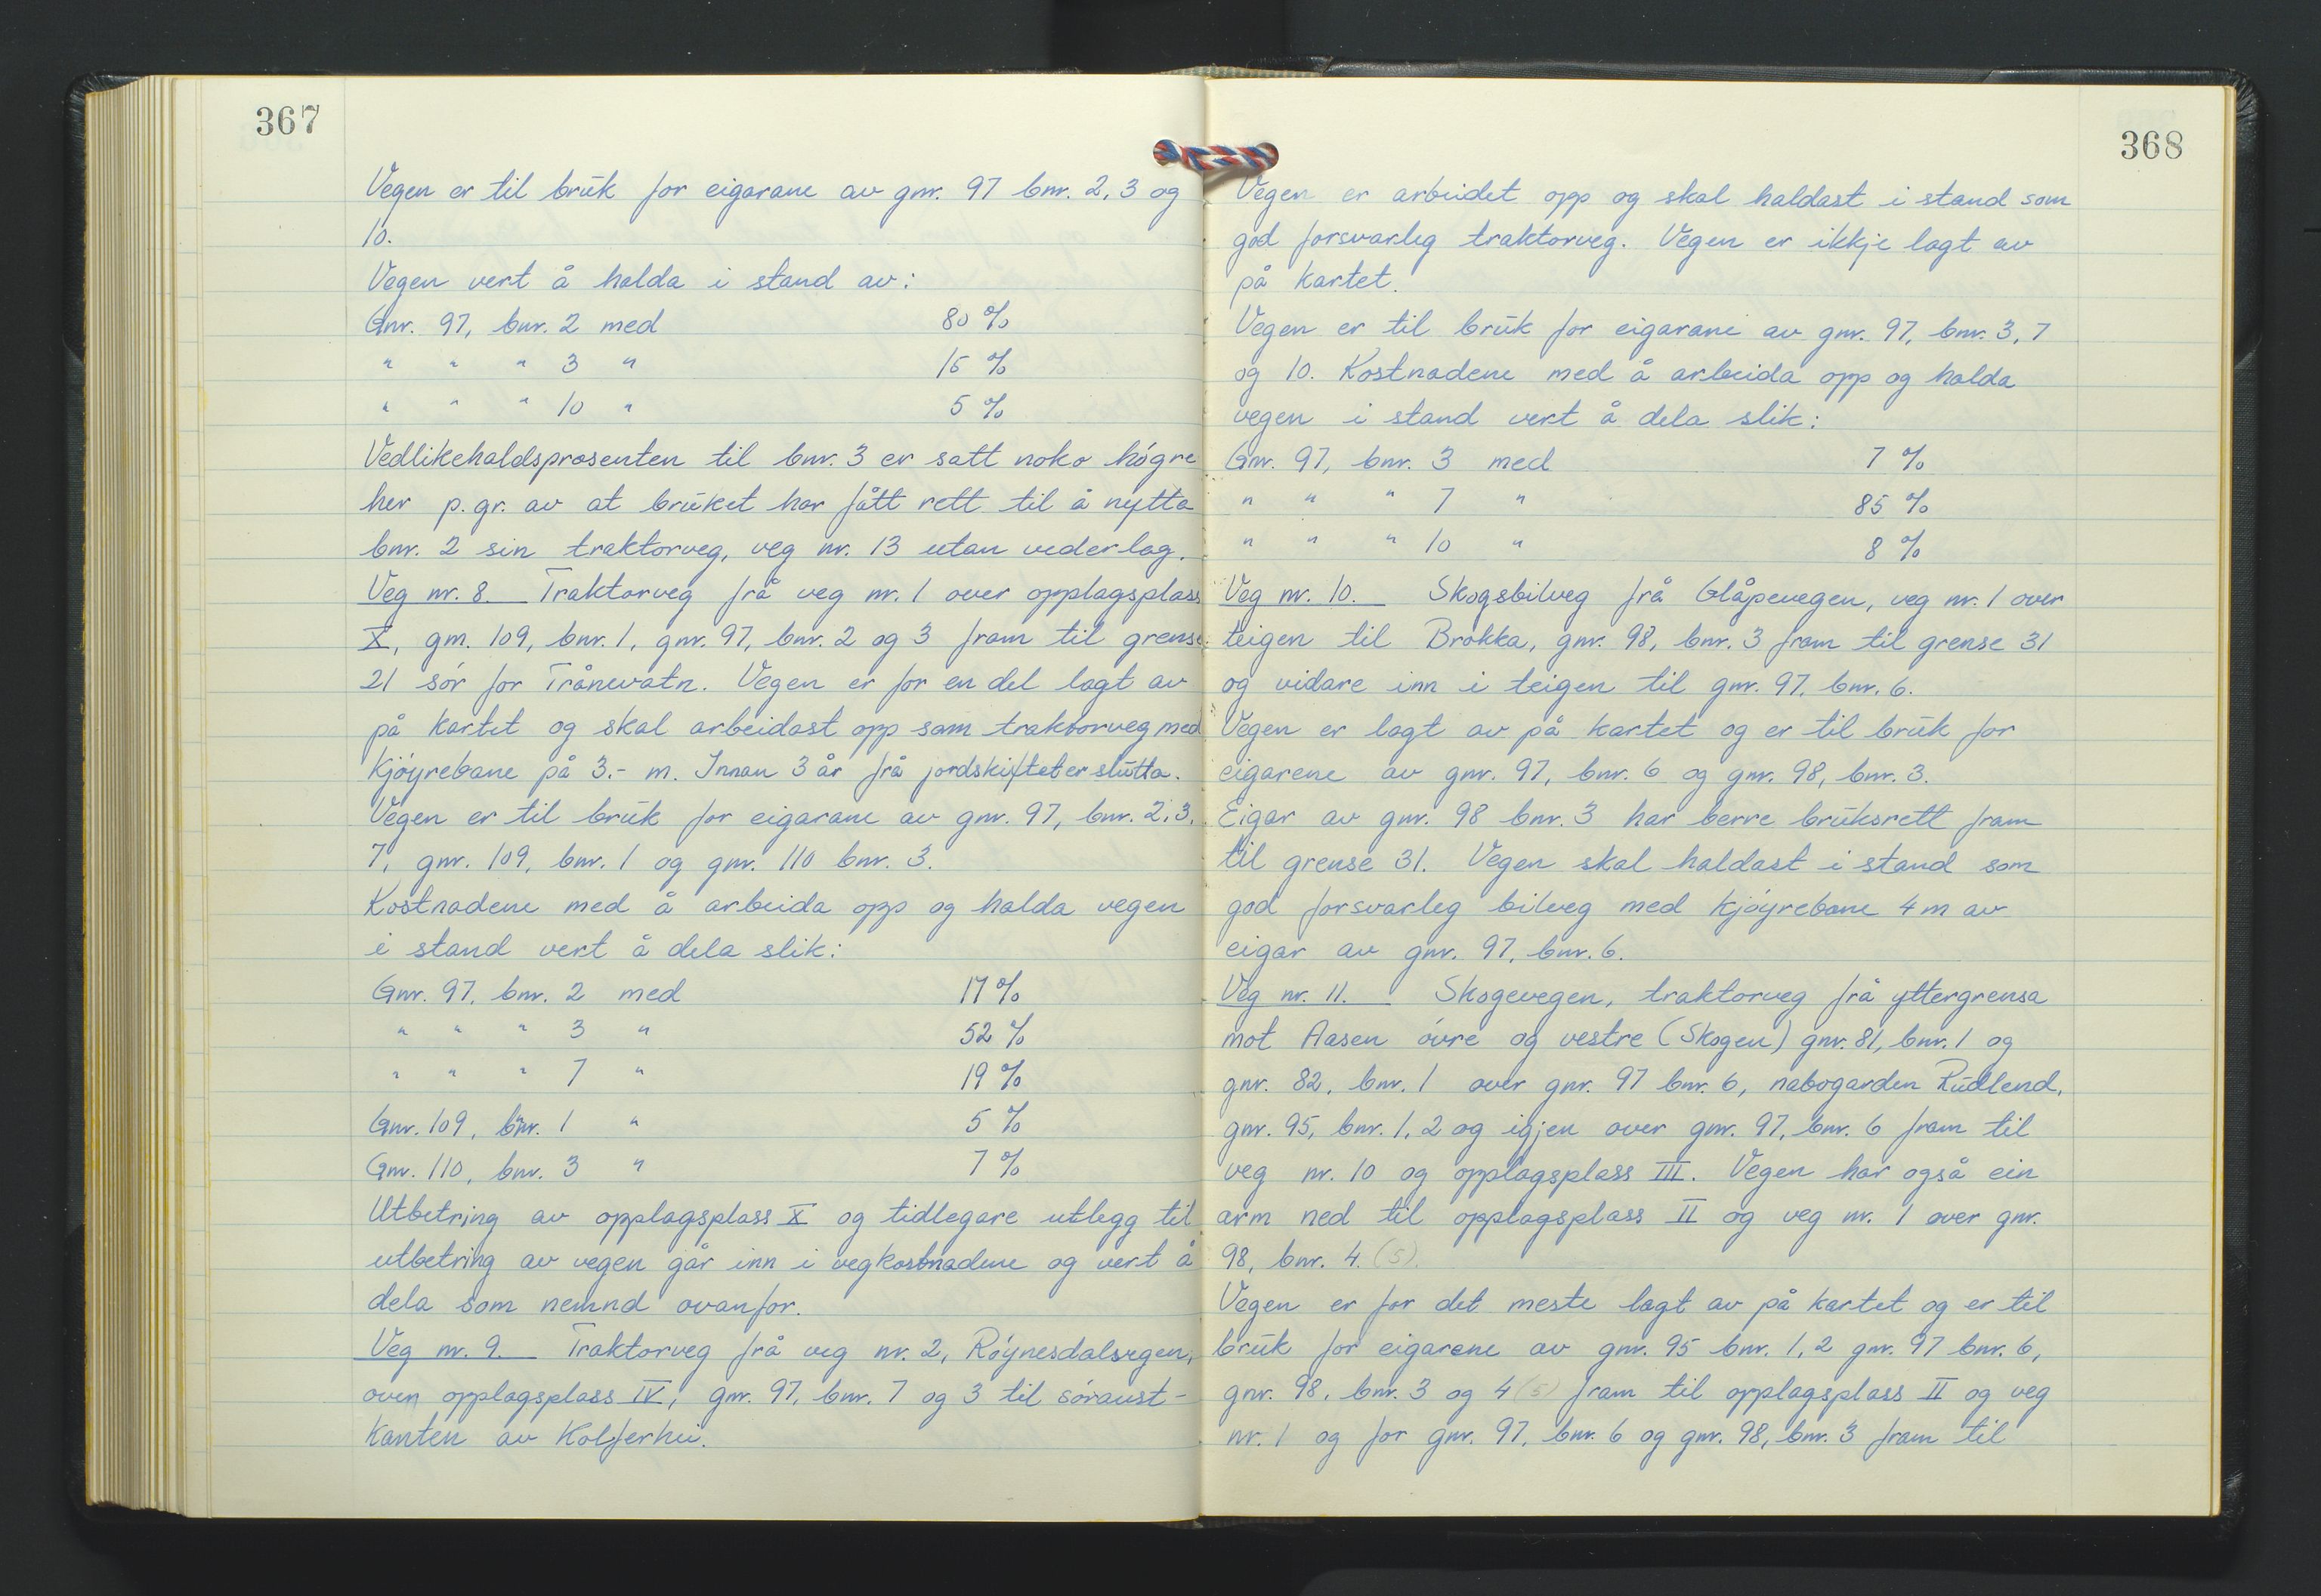 367
Vegen er til bruk for eigarane av gnr. 97 bnr. 2, 3 og
10.
Vegen vert å halda i stand av:
Gnr. 97, bnr. 2 med 80 %
" " " 3 " 15 %
" " " 10 " 5 %
Vedlikehaldsprosenten til bnr. 3 er satt noko høgre
her p. gr. av at bruket har fått rett til å nytta
bnr. 2 sin traktorveg, veg nr. 13 utan vederlag.
Veg nr. 8. Traktorveg frå veg nr. 1 over opplagsplass
X, gnr. 109, bnr. 1, gnr. 97, bnr. 2 og 3 fram til grense
21 sør for Trånevatn. Vegen er for en del lagt av
på kartet og skal arbeidast opp som traktorveg med
kjøyrebane på 3.- m. Innan 3 år frå jordskiftet er slutta.
Vegen er til bruk for eigarane av gnr. 97, bnr. 2, 3,
7, gnr. 109, bnr. 1 og gnr. 110 bnr. 3.
Kostnadene med å arbeida opp og halda vegen
i stand vert å dela slik:
Gnr. 97, bnr. 2 med 17 %
" " " 3 " 52 %
" " " 7 " 19 %
Gnr. 109, bnr. 1 " 5 %
Gnr. 110, bnr. 3 " 7 %
Utbetring av opplagsplass X og tidlegare utlegg til
utbetring av vegen går inn i vegkostnadene og vert å
dela som nemnd ovanfor.
Veg nr. 9. Traktorveg frå veg nr. 2, Røynesdalsvegen,
oven opplagsplass IV, gnr. 97, bnr. 7 og 3 til søraust-
kanten av Kolferhei.
368
Vegen er arbeidet opp og skal haldast i stand som
god forsvarleg traktorveg. Vegen er ikkje lagt av
på kartet.
Vegen er til bruk for eigarane av gnr. 97, bnr. 3, 7
og 10. Kostnadene med å arbeida opp og halda
vegen i stand vert å dela slik:
Gnr. 97, bnr. 3 med 7 %
" " " 7 " 85 %
" " " 10 " 8 %
Veg nr. 10. Skogsbilveg frå Glåpevegen, veg nr. 1 over
teigen til Brokka, gnr. 98, bnr. 3 fram til grense 31
og vidare inn i teigen til gnr. 97, bnr. 6.
Vegen er lagt av på kartet og er til bruk for
eigarene av gnr. 97, bnr. 6 og gnr. 98, bnr. 3.
Eigar av gnr. 98 bnr. 3 har berre bruksrett fram
til grense 31. Vegen skal haldast i stand som
god forsvarleg bilveg med kjøyrebane 4 m av
eigar av gnr. 97, bnr. 6.
Veg nr. 11. Skogevegen, traktorveg frå yttergrensa
mot Aasen øvre og vestre (Skogen) gnr. 81, bnr. 1 og
gnr. 82, bnr. 1 over gnr. 97 bnr. 6, nabogarden Rudlend,
gnr. 95, bnr. 1, 2 og igjen over gnr. 97, bnr. 6 fram til
veg nr. 10 og opplagsplass III. Vegen har også ein
arm ned til opplagsplass II og veg nr. 1 over gnr.
98, bnr. 4. (5).
Vegen er for det meste lagt av på kartet og er til
bruk for eigarene av gnr. 95 bnr. 1, 2 gnr. 97 bnr. 6,
gnr. 98, bnr. 3 og 4 (5) fram til opplagsplass II og veg
nr. 1 og for gnr. 97, bnr. 6 og gnr. 98, bnr. 3 fram til